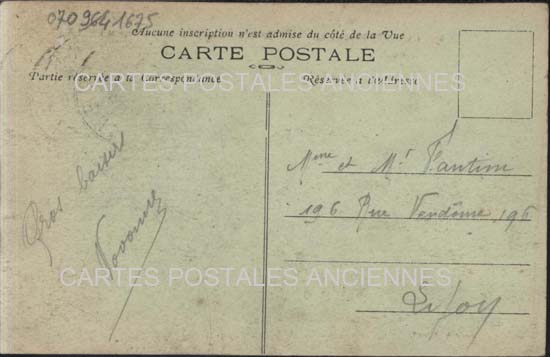 070 964 1675
Aucune inscription n'est admise du côté de la Vue
CARTE POSTALE
Partie réservée à la Correspondance
Réservée à l'adresse
CARTES POSTALES ANCIENNES
Gros baisers
Mme et Mr Fantin
196 Rue Vendôme, 196
CARTES POSTALES ANCIENNES